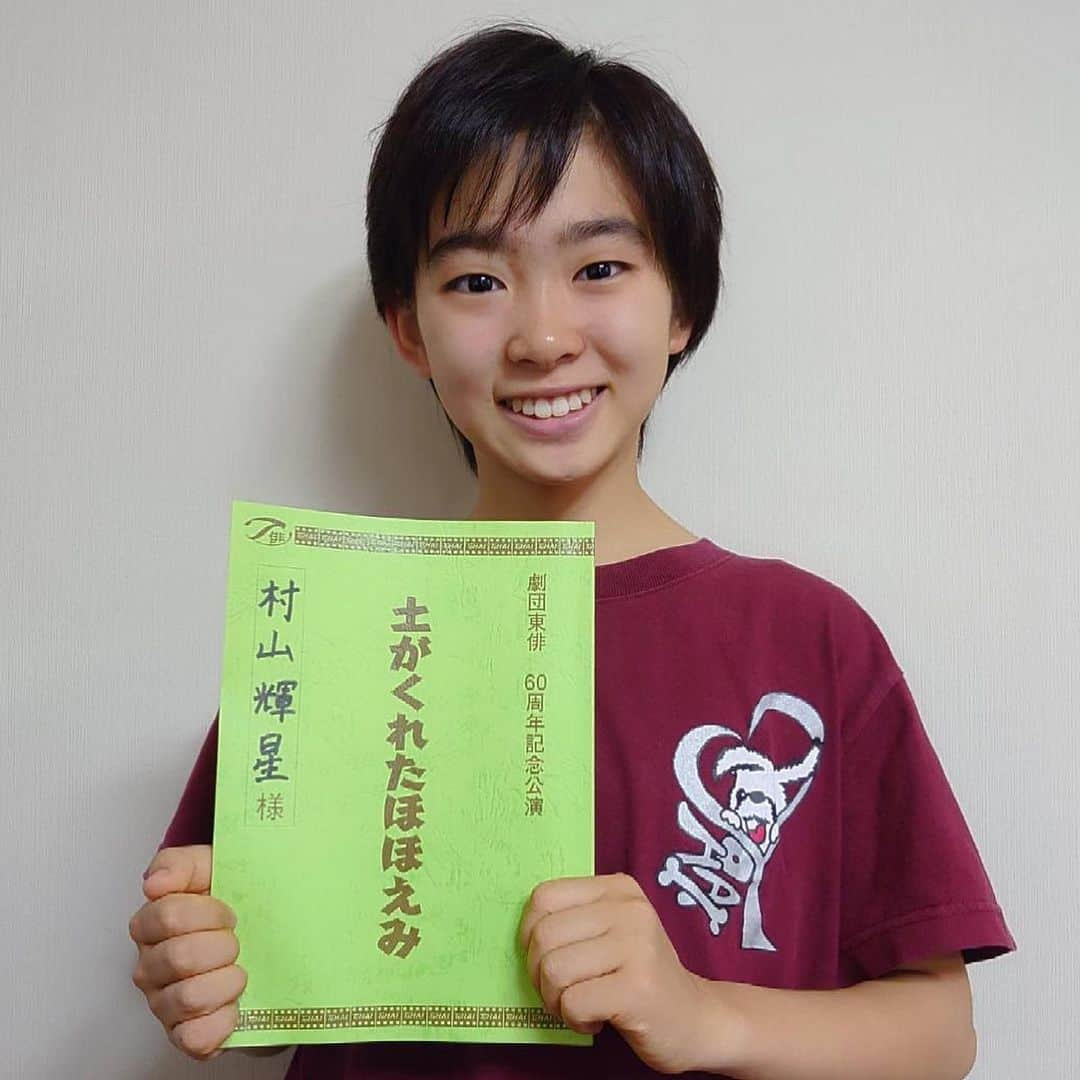 劇団東俳 60周年記念公演
土がくれたほほえみ
村山輝星様
俳